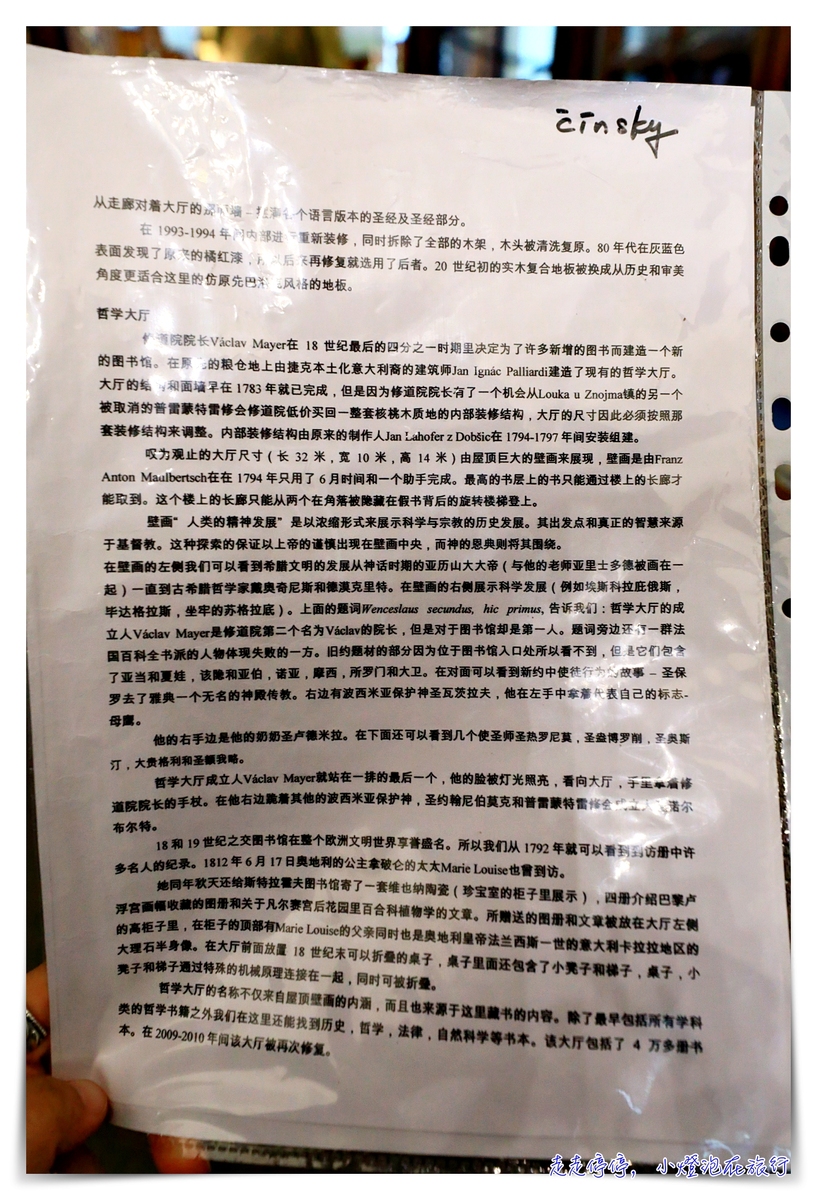 čínsky
从走廊对着大厅的 – 个语言版本的圣经及圣经部分。
在 1993-1994 年间内部进行重新装修，同时拆除了全部的木架，木头被清洗复原。80 年代在灰蓝色
表面发现了原来的橘红漆，所以后来再修复就选用了后者。20 世纪初的实木复合地板被换成从历史和审美
角度更适合这里的仿原先巴洛克风格的地板。
哲学大厅
修道院院长Václav Mayer在 18 世纪最后的四分之一时期里决定为了许多新增的图书而建造一个新
的图书馆。在原先的粮仓地上由捷克本土化意大利裔的建筑师Jan Ignác Palliardi建造了现有的哲学大厅。
大厅的结构和面墙早在 1783 年就已完成，但是因为修道院院长有了一个机会从Louka u Znojma镇的另一个
被取消的普雷蒙特雷修会修道院低价买回一整套核桃木质地的内部装修结构，大厅的尺寸因此必须按照那
套装修结构来调整。内部装修结构由原来的制作人Jan Lahofer z Dobšic在 1794-1797 年间安装组建。
叹为观止的大厅尺寸（长 32 米，宽 10 米，高 14 米）由屋顶巨大的壁画来展现，壁画是由Franz
Anton Maulbertsch在在 1794 年只用了 6 月时间和一个助手完成。最高的书层上的书只能通过楼上的长廊才
能取到。这个楼上的长廊只能从两个在角落被隐藏在假书背后的旋转楼梯登上。
壁画“ 人类的精神发展”是以浓缩形式来展示科学与宗教的历史发展。其出发点和真正的智慧来源
于基督教。这种探索的保证以上帝的谨慎出现在壁画中央，而神的恩典则将其围绕。
在壁画的左侧我们可以看到希腊文明的发展从神话时期的亚历山大大帝（与他的老师亚里士多德被画在一
起）一直到古希腊哲学家戴奥奇尼斯和德漠克里特。在壁画的右侧展示科学发展（例如埃斯科拉庇俄斯，
毕达格拉斯，坐牢的苏格拉底）。上面的题词Wenceslaus secundus, hic primus, 告诉我们：哲学大厅的成
立人Václav Mayer是修道院第二个名为Václav的院长，但是对于图书馆却是第一人。题词旁边还有一群法
国百科全书派的人物体现失败的一方。旧约题材的部分因为位于图书馆入口处所以看不到，但是它们包含
了亚当和夏娃，该隐和亚伯，诺亚，摩西，所罗门和大卫。在对面可以看到新约中使徒行为的故事 – 圣保
罗去了雅典一个无名的神殿传教。右边有波西米亚保护神圣瓦茨拉夫，他在左手中拿着代表自己的标志-
母鹰。
他的右手边是他的奶奶圣卢德米拉。在下面还可以看到几个使圣师圣热罗尼莫，圣盎博罗削，圣奥斯
汀，大贵格利和圣额我略。
哲学大厅成立人Václav Mayer就站在一排的最后一个，他的脸被灯光照亮，看向大厅，手里拿着修
道院院长的手杖。在他右边跪着其他的波西米亚保护神，圣约翰尼伯莫克和普雷蒙特雷修会成立人 诺尔
布尔特。
18 和 19 世纪之交图书馆在整个欧洲文明世界享誉盛名。所以我们从 1792 年就可以看到到访册中许
多名人的纪录。1812 年 6 月 17 日奥地利的公主拿破仑的太太Marie Louise也曾到访。
她同年秋天还给斯特拉霍夫图书馆寄了一套维也纳陶瓷（珍宝室的柜子里展示），四册介绍巴黎卢
浮宫画幅收藏的图册和关于凡尔赛宫后花园里百合科植物学的文章。所赠送的图册和文章被放在大厅左侧
的高柜子里，在柜子的顶部有Marie Louise的父亲同时也是奥地利皇帝法兰西斯一世的意大利卡拉拉地区的
大理石半身像。在大厅前面放置 18 世纪末可以折叠的桌子，桌子里面还包含了小凳子和梯子，桌子，小
凳子和梯子通过特殊的机械原理连接在一起，同时可被折叠。
哲学大厅的名称不仅来自屋顶壁画的内涵，而且也来源于这里藏书的内容。除了最早包括所有学科
类的哲学书籍之外我们在这里还能找到历史，哲学，法律，自然科学等书本。该大厅包括了 4 万多册书
本。在 2009-2010 年间该大厅被再次修复。
走走停停，小燈泡在旅行